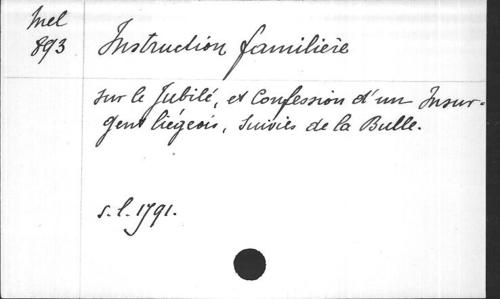 Mel
893
Instruction familière
sur le Jubilé, et Confession d'un Insur-
gent liégeois, suivies de la Bulle.
s.l. 1791.